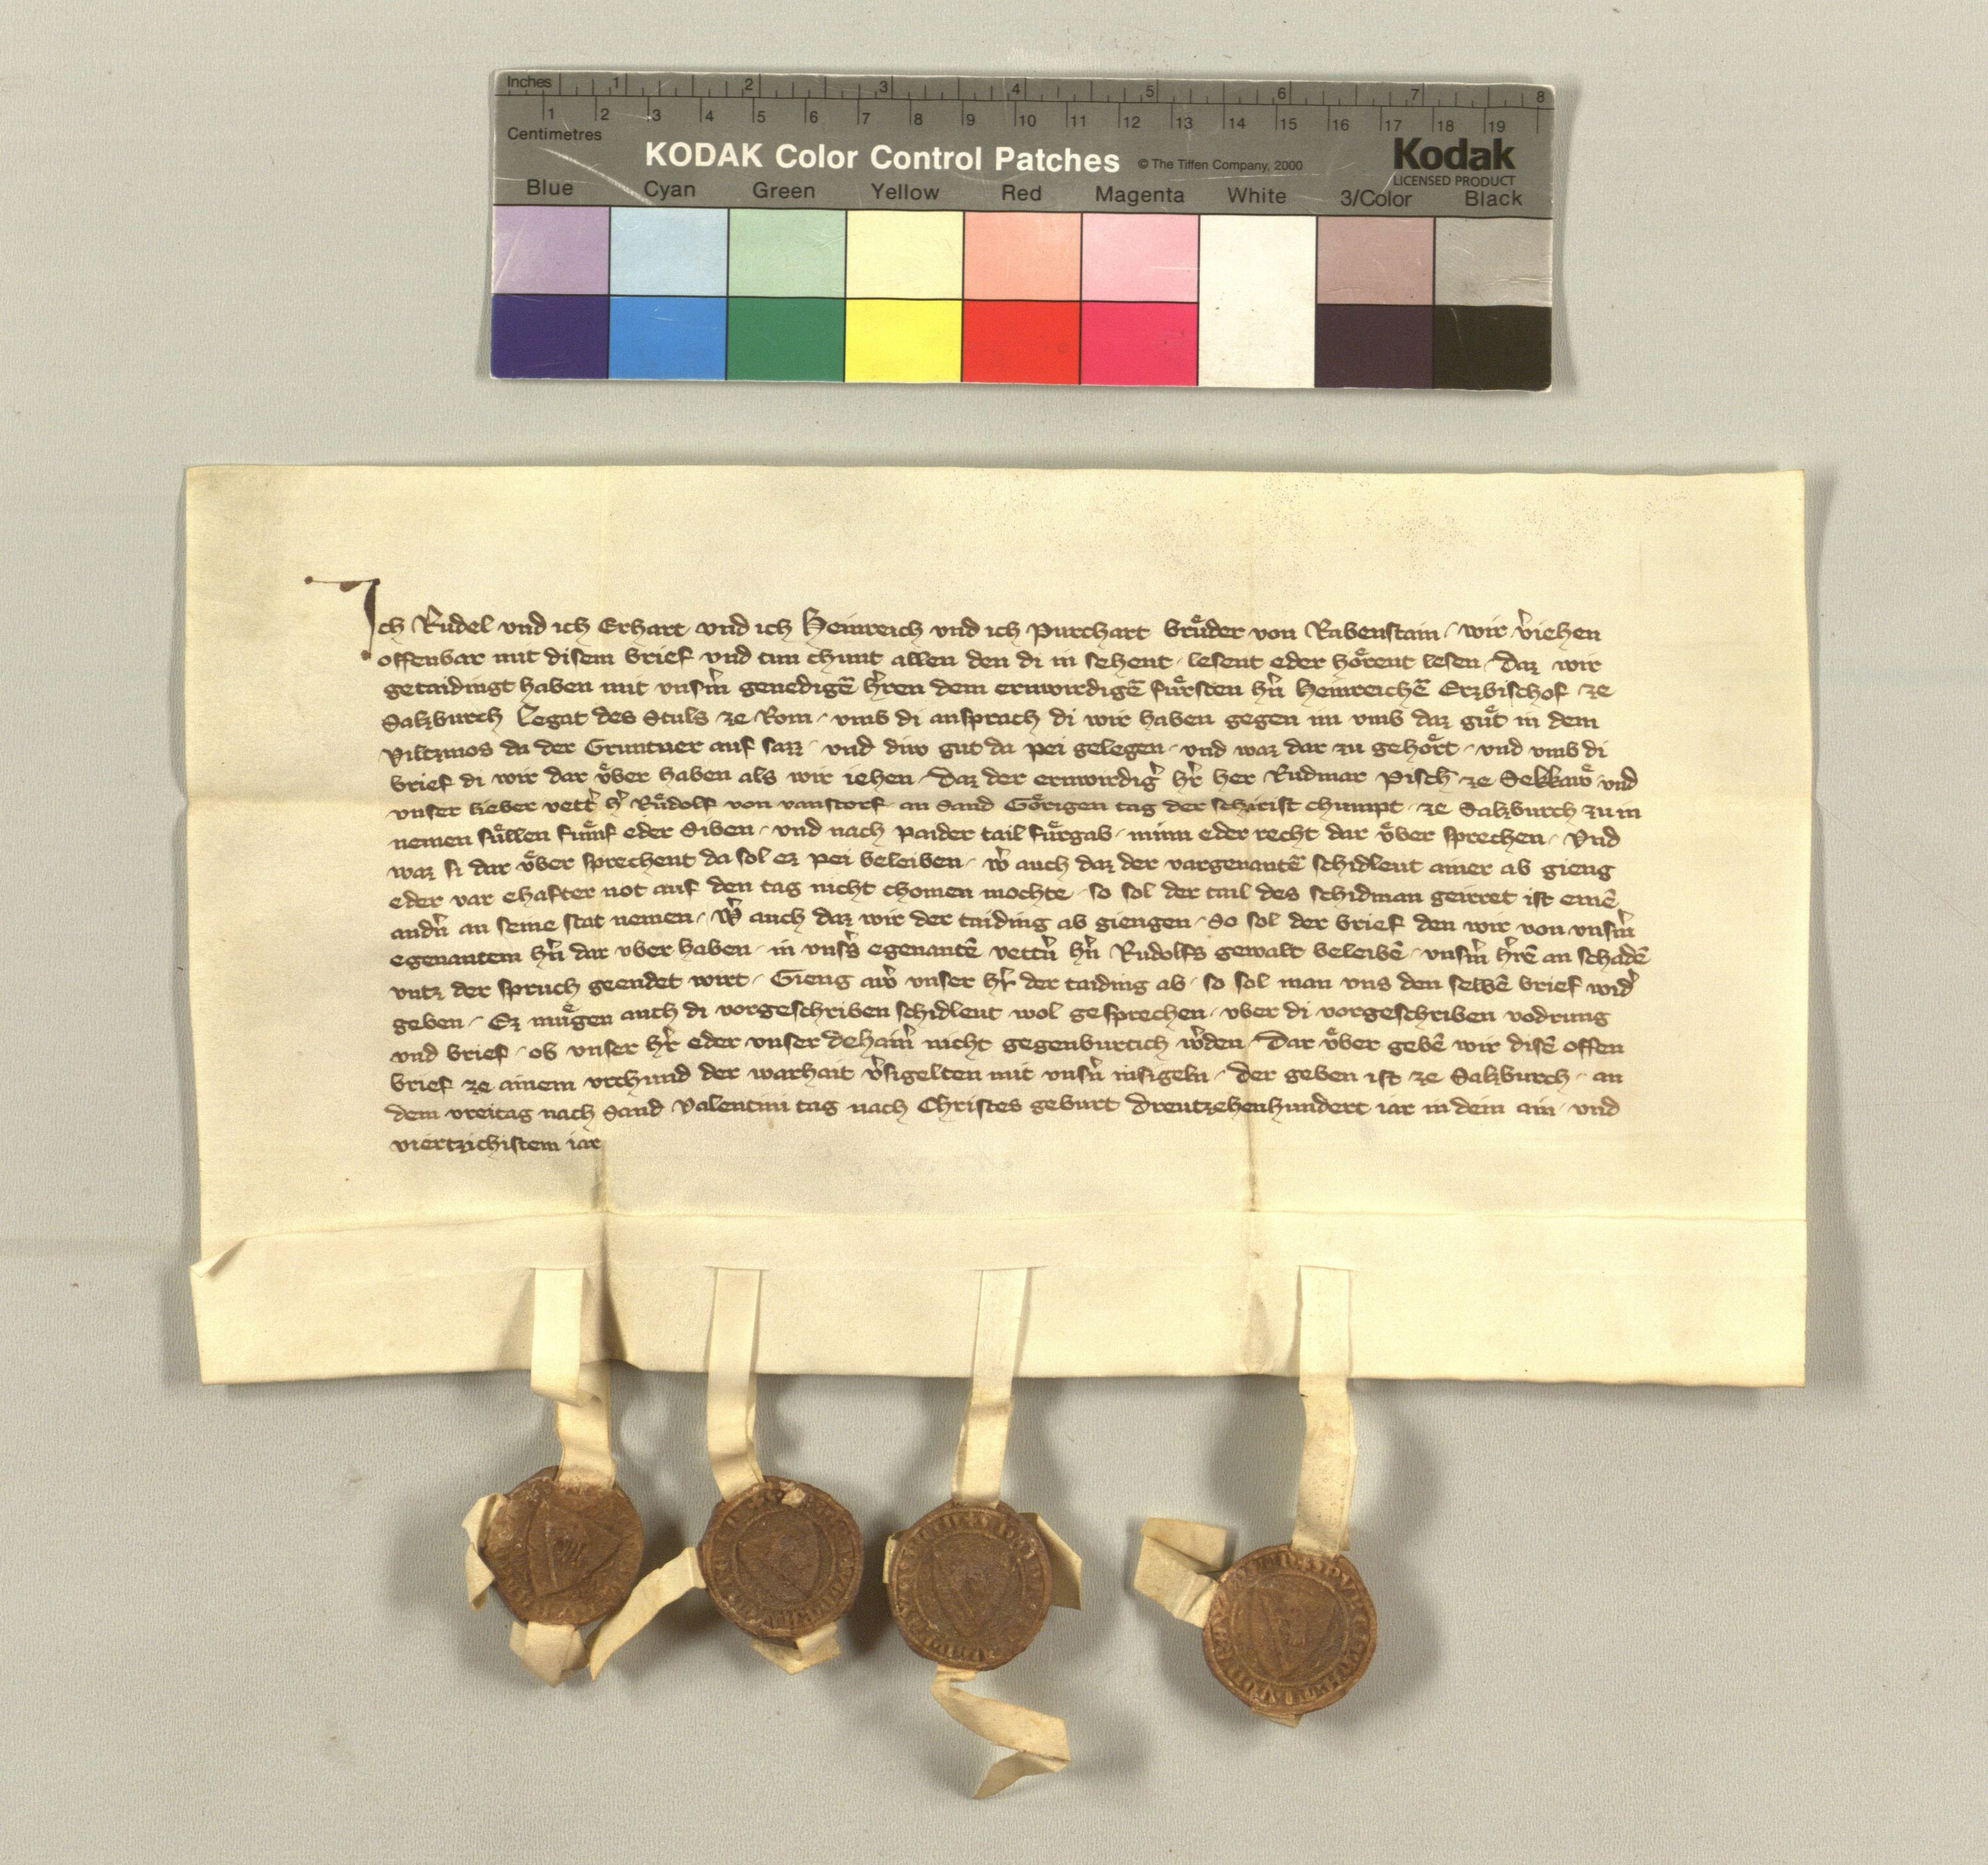 Inches 1 2 3 4 5 6 7 8
1 2 3 4 5 6 7 8 9 10 11 12 13 14 15 16 17 18 19
Centimetres
KODAK Color Control Patches © The Tiffen Company, 2000 Kodak
LICENSED PRODUCT
Blue Cyan Green Yellow Red Magenta White 3/Color Black
Ich Rudel vnd ich Erhart vnd ich Heinreich vnd ich Purchart bruͤder von Rabenstain wir v̉iehen
offenbar mit disem brief vnd tun chunt allen den di in sehent lesent eder hoͤrent lesen Daz wir
getaidingt haben mit vnsm̉ genedigē hr̉en dem erwirdigē fuͤrsten hn̉ Heinreichē Erzbischof ze
Salzburch Legat des Stuls ze Rom vmb di ansprach di wir haben gegen im vmb daz guͤt in dem
Viltzmos da der Gruntner auf sazz vnd diw gut da pei gelegen vnd waz dar zu gehoͤrt vnd vmb di
brief di wir dar vͤber haben als wir iehen Daz der erwirdig̉ hr̉ her Rudmar Pisch ze Sekkaw vnd
vnser lieber vett̉ h̉ Ruͤdolf von vanstorf an Sand Goͤrigen tag der schirist chumpt ze Salzburch zu in
nemen suͤllen fuͤmf eder Siben vnd nach paider tail fuͤrgab minn eder recht dar vͤber sprechen Vnd
waz si dar vͤber sprechent da sol ez pei beleiben w̉ auch daz der vargenantē schidleut ainer ab gieng
eder var ehafter not auf den tag nicht chomen mochte so sol der tail des schidman geirret ist einē
andn̉ an seine stat nemen W̉ auch daz wir der taiding ab giengen So sol der brief den wir von vnsm̉
egenantem hn̉ dar vber haben in vnss̉ egenantē vettn̉ hn̉ Rudolfs gewalt beleibē vnsm̉ hr̉ē an schadē
vntz der spruch geendet wirt Gieng aw̉ vnser hr̉ der taiding ab so sol man vns den selbē brief wid̉
geben Ez muͤgen auch di vorgeschriben schidleut wol gesprechen vber di vorgeschriben vodrung
vnd brief ob vnser hr̉ eder vnser dehain̉ nicht gegenburtich w̉den Dar vͤber gebē wir disē offen
brief ze ainem vrchund der warhait v̉sigelten mit vnsn̉ insigeln Der geben ist ze Salzburch an
dem vreitag nach Sand Valentini tag nach Christes geburt Dreutzehenhundert iar in dem ain vnd
viertzichistem iar